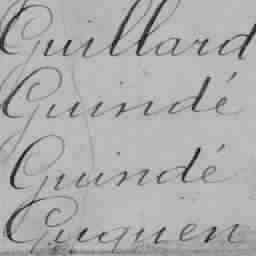 Guillard
Guindé
Guindé
Guguen